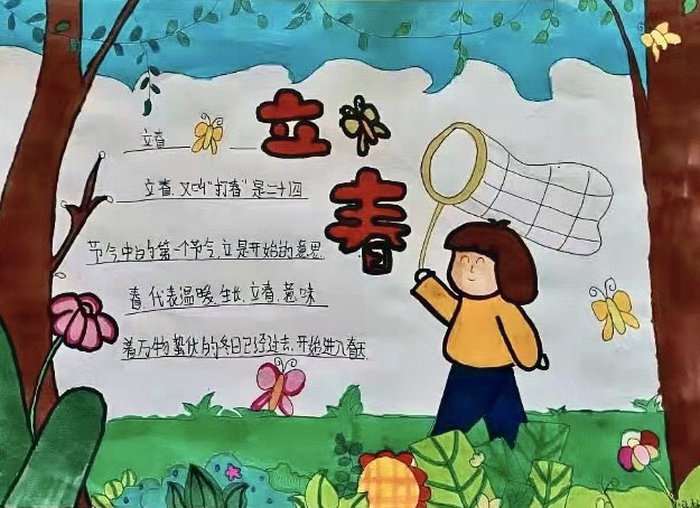 立春
立春
立春,又叫"打春"是二十四
节气中的第一个节气,立是开始的意思,
春,代表温暖,生长,立春,意味
着万物蛰伏的冬日已经过去,开始进入春天